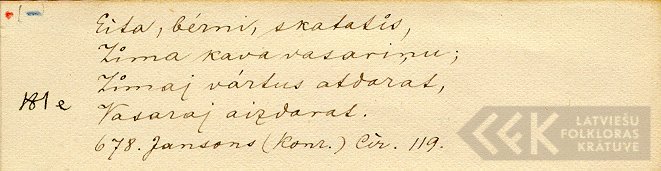 Eita, bérni, skatatīs,
Zīma kava vasariņu;
Zīmaj vártus atdarat,
Vasaraj aizdarat.
678. Jansons (Konr.) Cir. 119.
LATVIEŠU
FOLKLORAS
KRĀTUVE